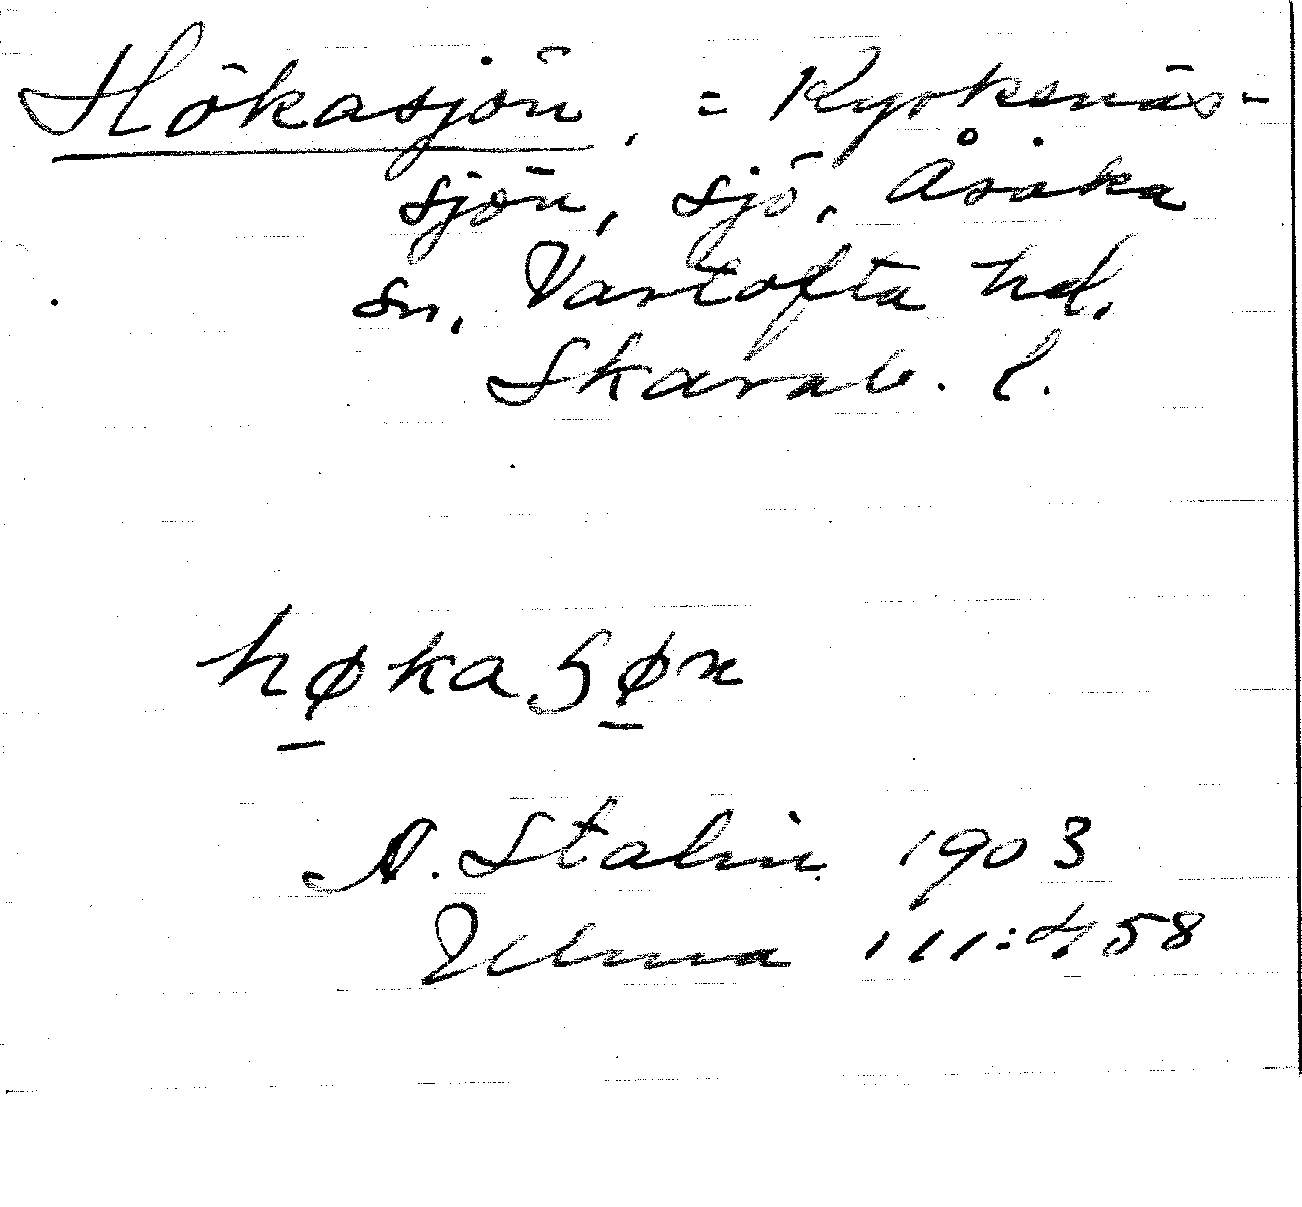 Hökasjön, = Kyrkenäs-
sjön, sjö, Åsaka
sn. Vartofta hd.
Skarab. l.
hø̱ka ʃø̱n
A. Stalin 1903
Ulma 111:458